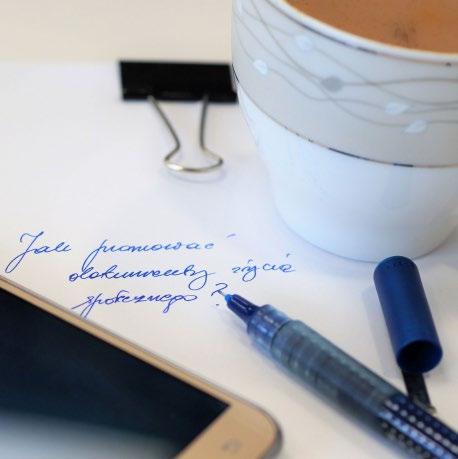 Jak promować
dokumenty życia
społecznego?